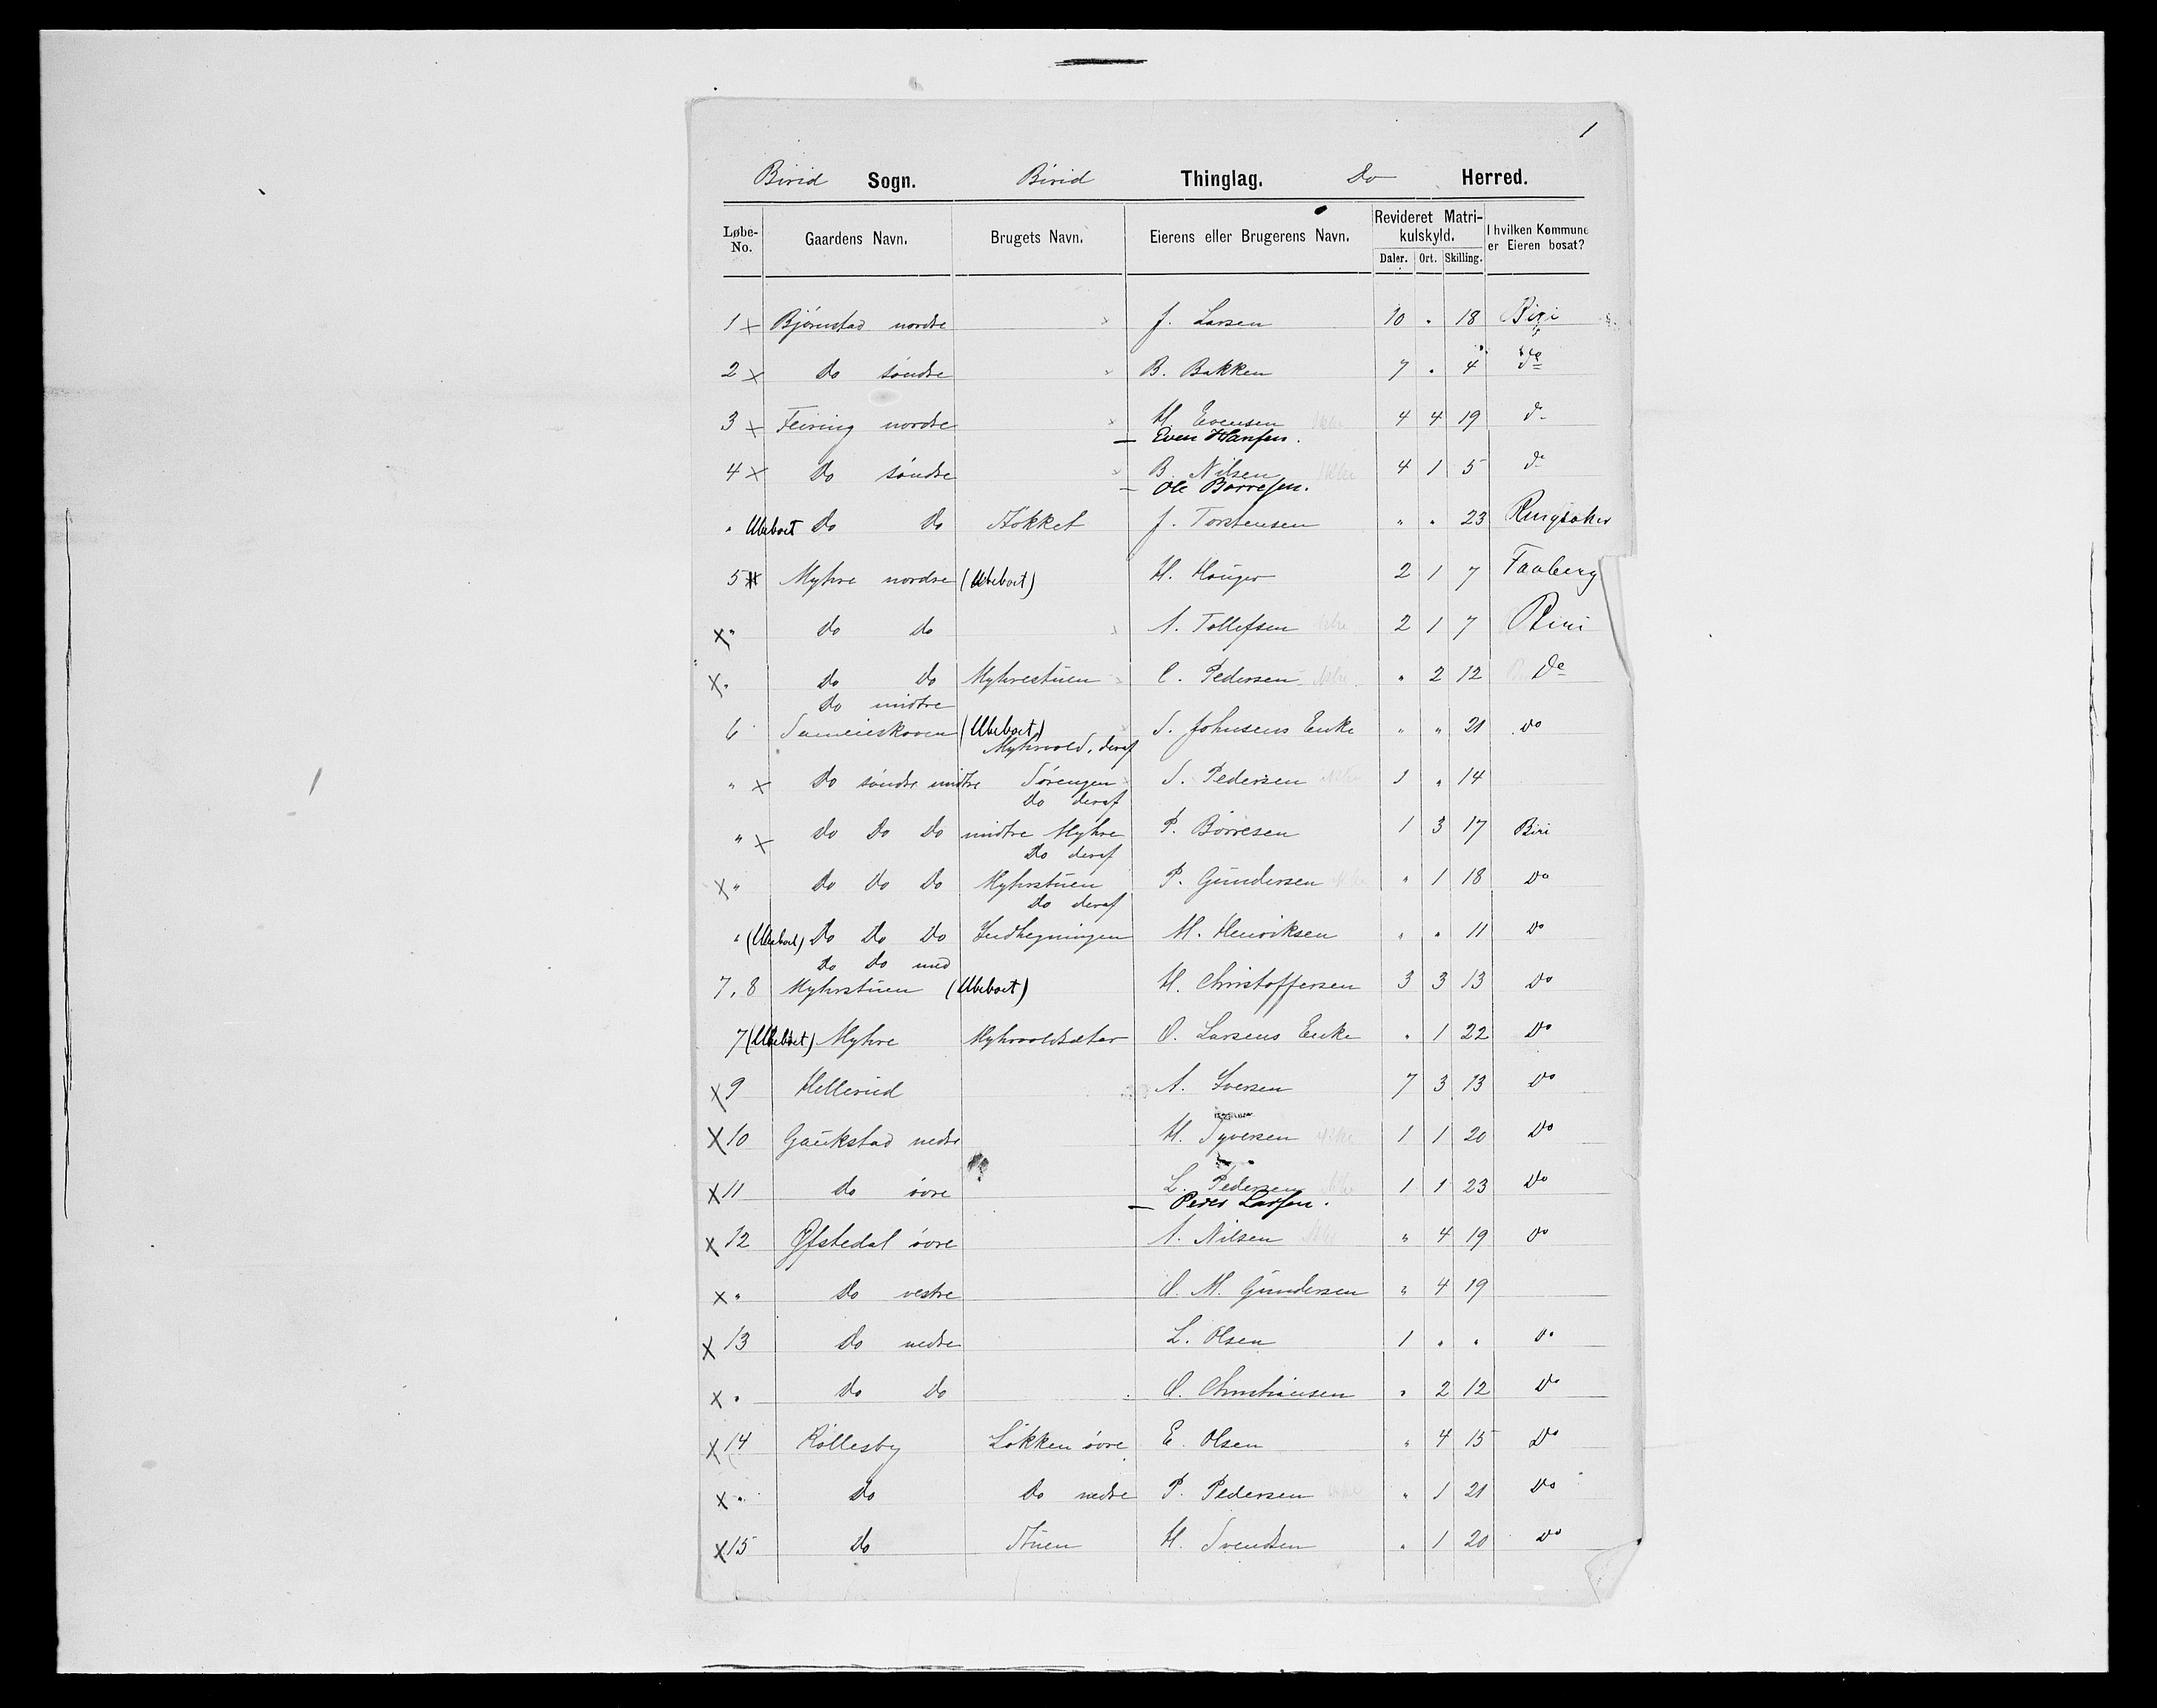 1
Birid Sogn. Birid Thinglag. Do Herred.
Løbe-No. Gaardens Navn. Brugets Navn. Eierens eller Brugerens Navn. Revideret Matrikulskyld. I hvilken Kommune er Eieren bosat?
Daler. Ort. Skilling.
1 x Bjørnstad nordre J. Larsen 10 " 18 Biri
2 x Do søndre B. Bakken 7 " 4 do
3 x Feiring nordre H. Evensen 4 4 19 do
— Even Hansen.
4 x Do søndre B. Nilsen 4 1 5 do
— Ole Børresen.
" Ubeboet Do Do Stokket J. Torstensen " " 23 Ringsaker
5 x Myhre nordre (Ubeboet) H. Hauger 2 1 7 Faaberg
x " Do Do A. Tollefsen 2 1 7 Biri
x " Do Do Myhrestuen C. Pedersen " 2 12 Do
Do midtre
6 Sameieskoven (Ubeboet) S. Johnsens Enke " " 21 Do
Myhrvold, deraf
" x Do søndre midtre Sørengen S. Pedersen 1 " 14
Do deraf
" x Do Do Do midtre Myhre P. Børresen 1 3 17 Biri
Do deraf
x " Do Do Do Myhrstuen P. Gundersen " 1 18 Do
Do deraf
" (Ubeboet) Do Do Do Indhegningen M. Henriksen " " 11 Do
Do Do med
7, 8 Myhrstuen (Ubeboet) H. Christoffersen 3 3 13 Do
7 (Ubeboet) Myhre Myhrvoldsæter O. Larsens Enke " 1 22 Do
x 9 Hellerud A. Iversen 7 3 13 Do
x 10 Gaukstad nedre H. Syversen 1 1 20 Do
x 11 do øvre L. Pedersen 1 1 23 Do
— Peder Larsen.
x 12 Øfstedal øvre A. Nilsen " 4 19 Do
x " Do vestre O. M. Gundersen " 4 19
x 13 Do nedre L. Olsen 1 " " Do
x " Do Do O. Christiansen " 2 12 Do
x 14 Kollesby Løkken øvre E. Olsen " 4 15 Do
x " Do Do nedre P. Pedersen " 1 21 Do
x 15 Do Stuen H. Svendsen " 1 20 Do